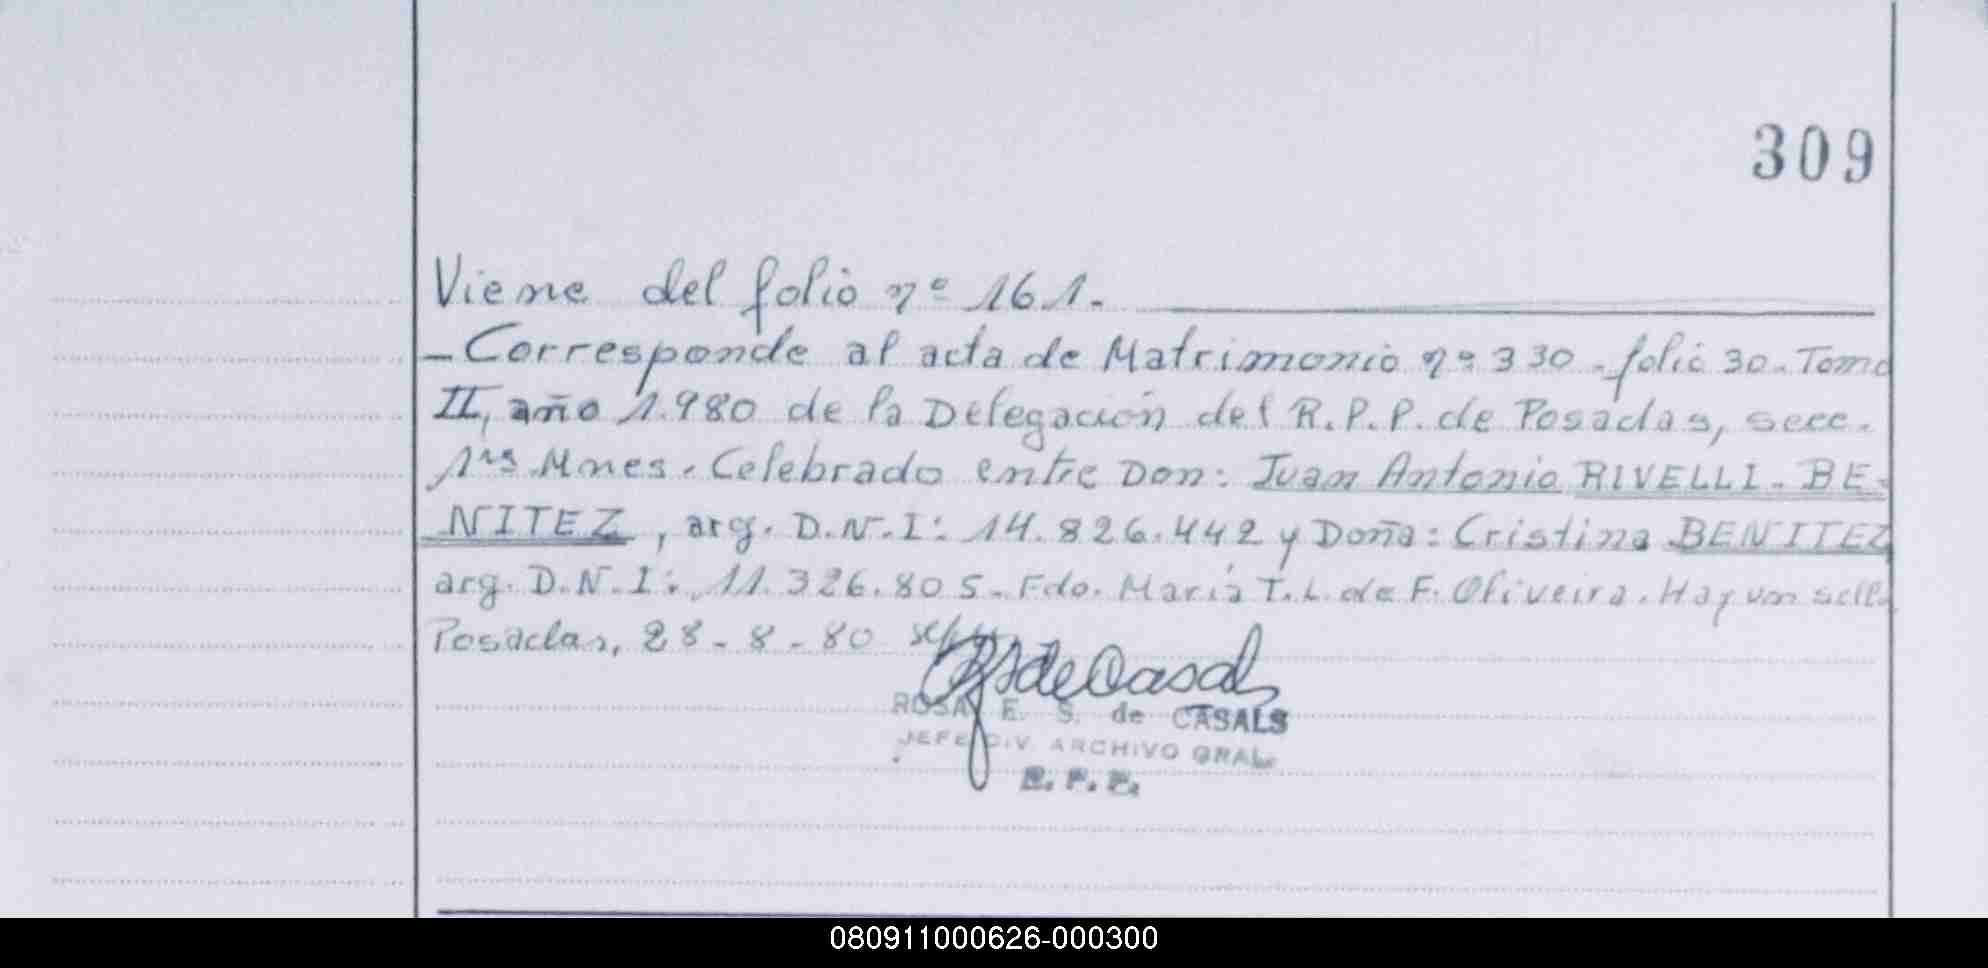 309
Viene del folio nº 161.
- Corresponde al acta de Matrimonio nº 330 - folio 30 - Tomo
II, año 1.980 de la Delegación del R.P.P. de Posadas, secc.
1ra Mnes. Celebrado entre Don: Juan Antonio RIVELLI - BE-
NITEZ, arg. D.N.I: 14.826.442 y Doña: Cristina BENITEZ
arg. D.N.I: 11.326.805 - Fdo. María T. L. de F. Oliveira. Hay un sello
Posadas, 28 - 8 - 80
ROSA E. S. de CASALS
JEFE DIV. ARCHIVO GRAL.
R. P. P.
080911000626-000300